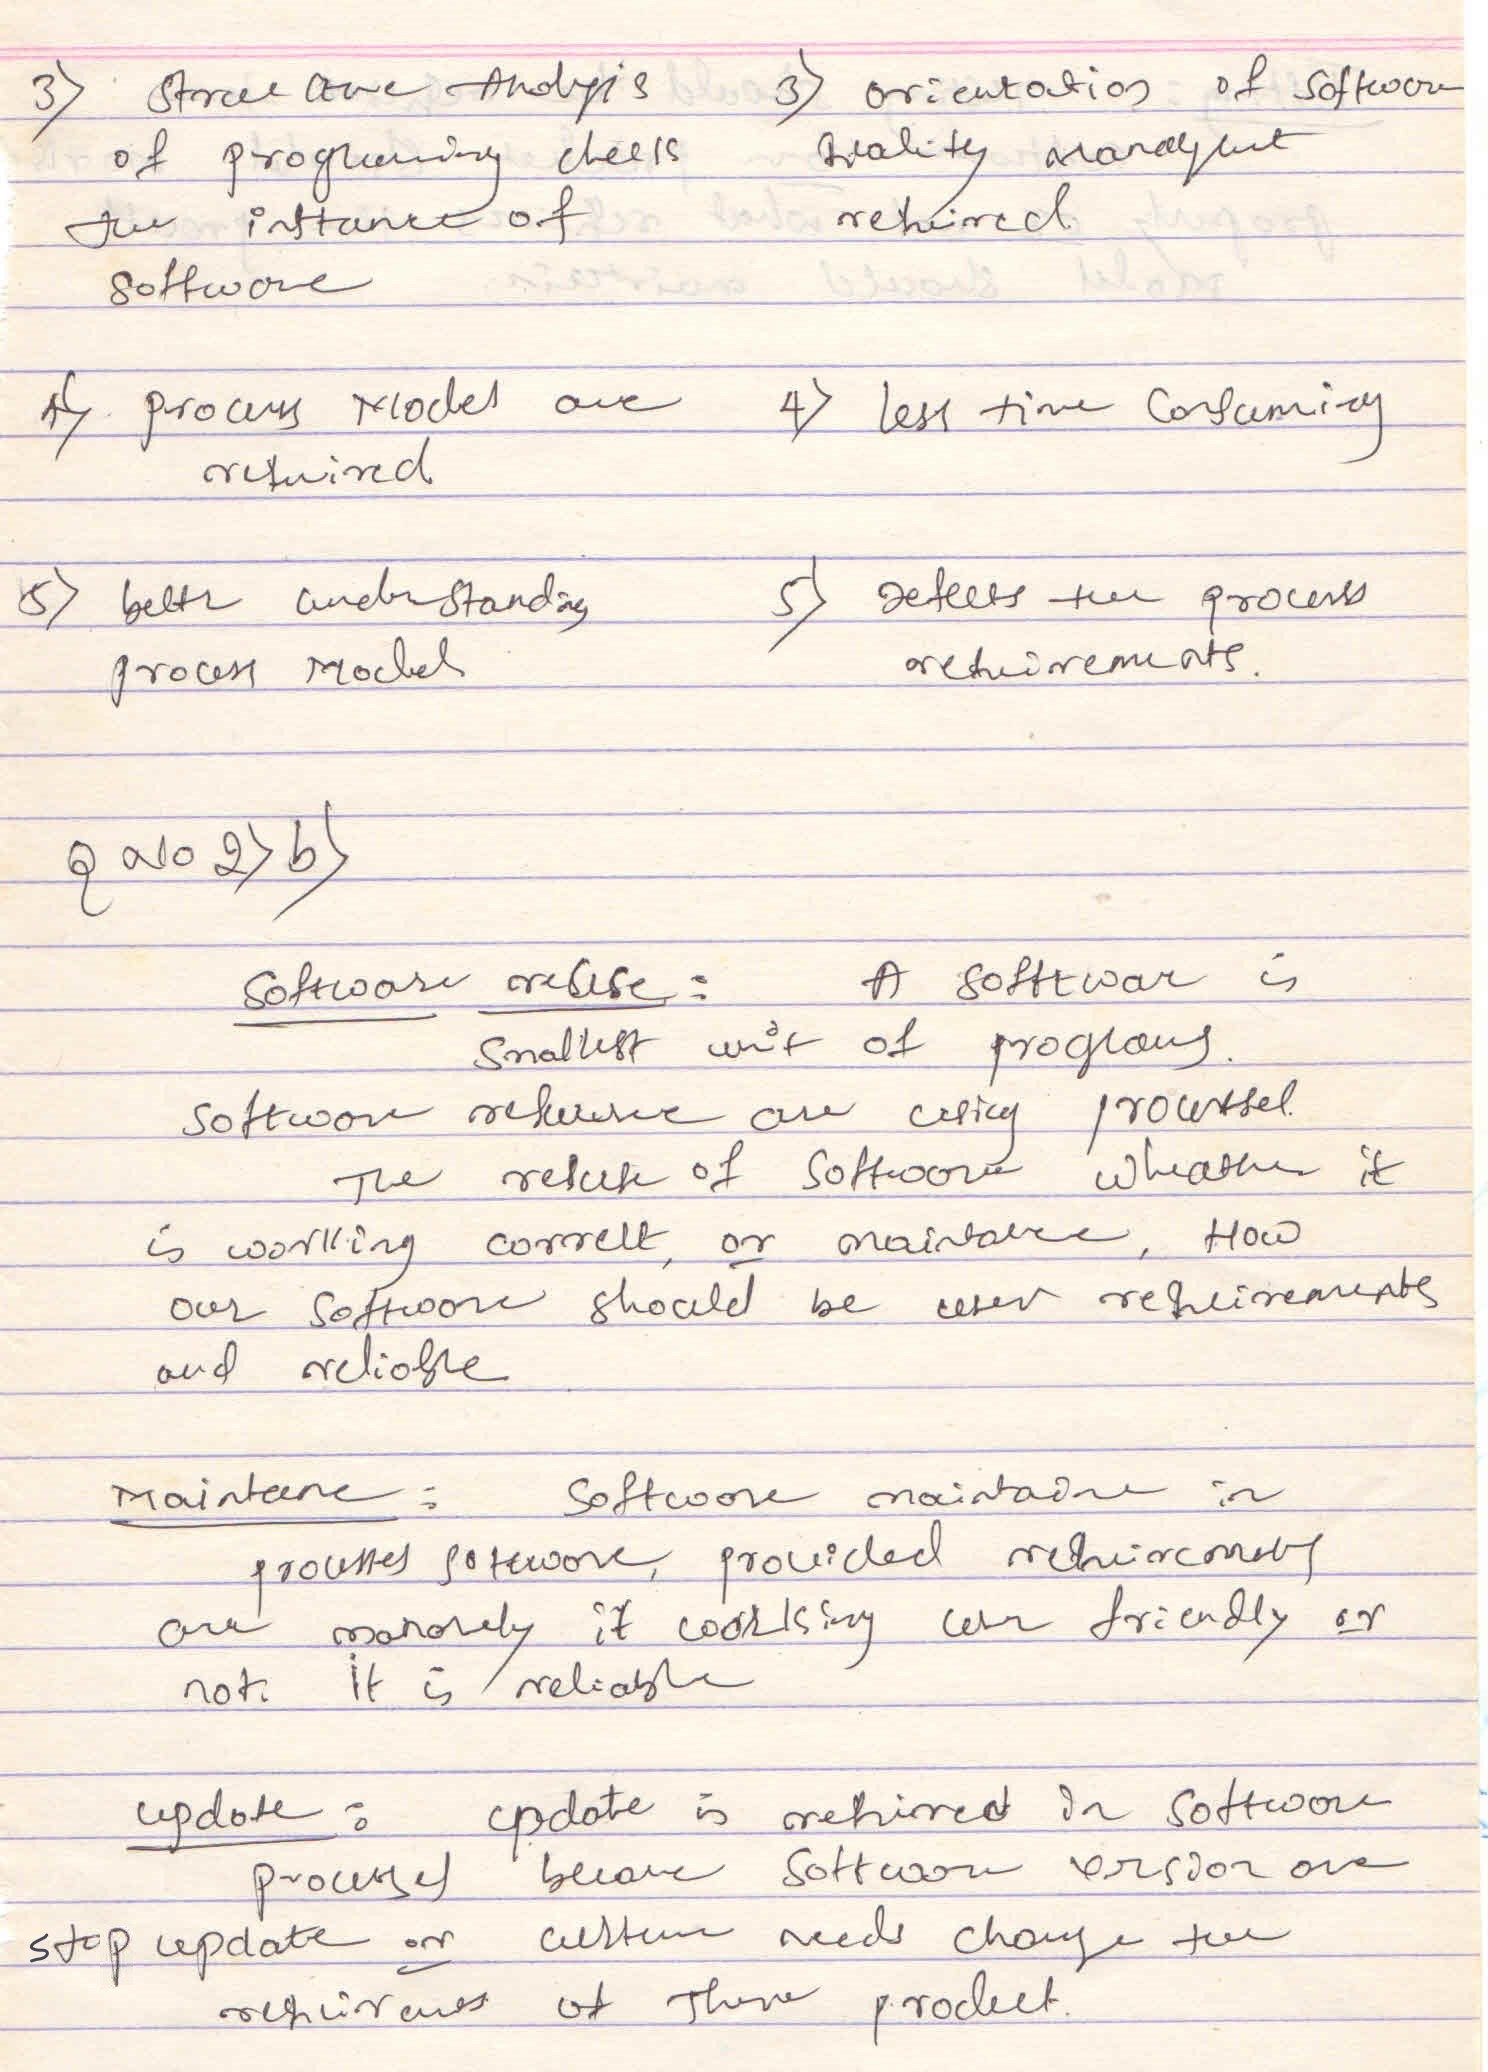 3) Structure Analysis
of programing checks
the instance of
software
3) orientation of software
quality managment
required
4) process Model are
required
4) less time Consuming
5) better understanding
process Model
5) Defects the process
requirements.
Q No 2) b)
Software reuse : A softtwar is
smallest unit of programs.
Software reuse are using processes.
The reuse of software wheather it
is working correct, or maintance, How
our software should be user requirements
and reliable
Maintance : Software maintaine in
processes software, provided requirements
are it working user friendly or
not. It is reliable
update : update is required in software
processes became software version are
stop update or custumer needs change the
requirements of There product.